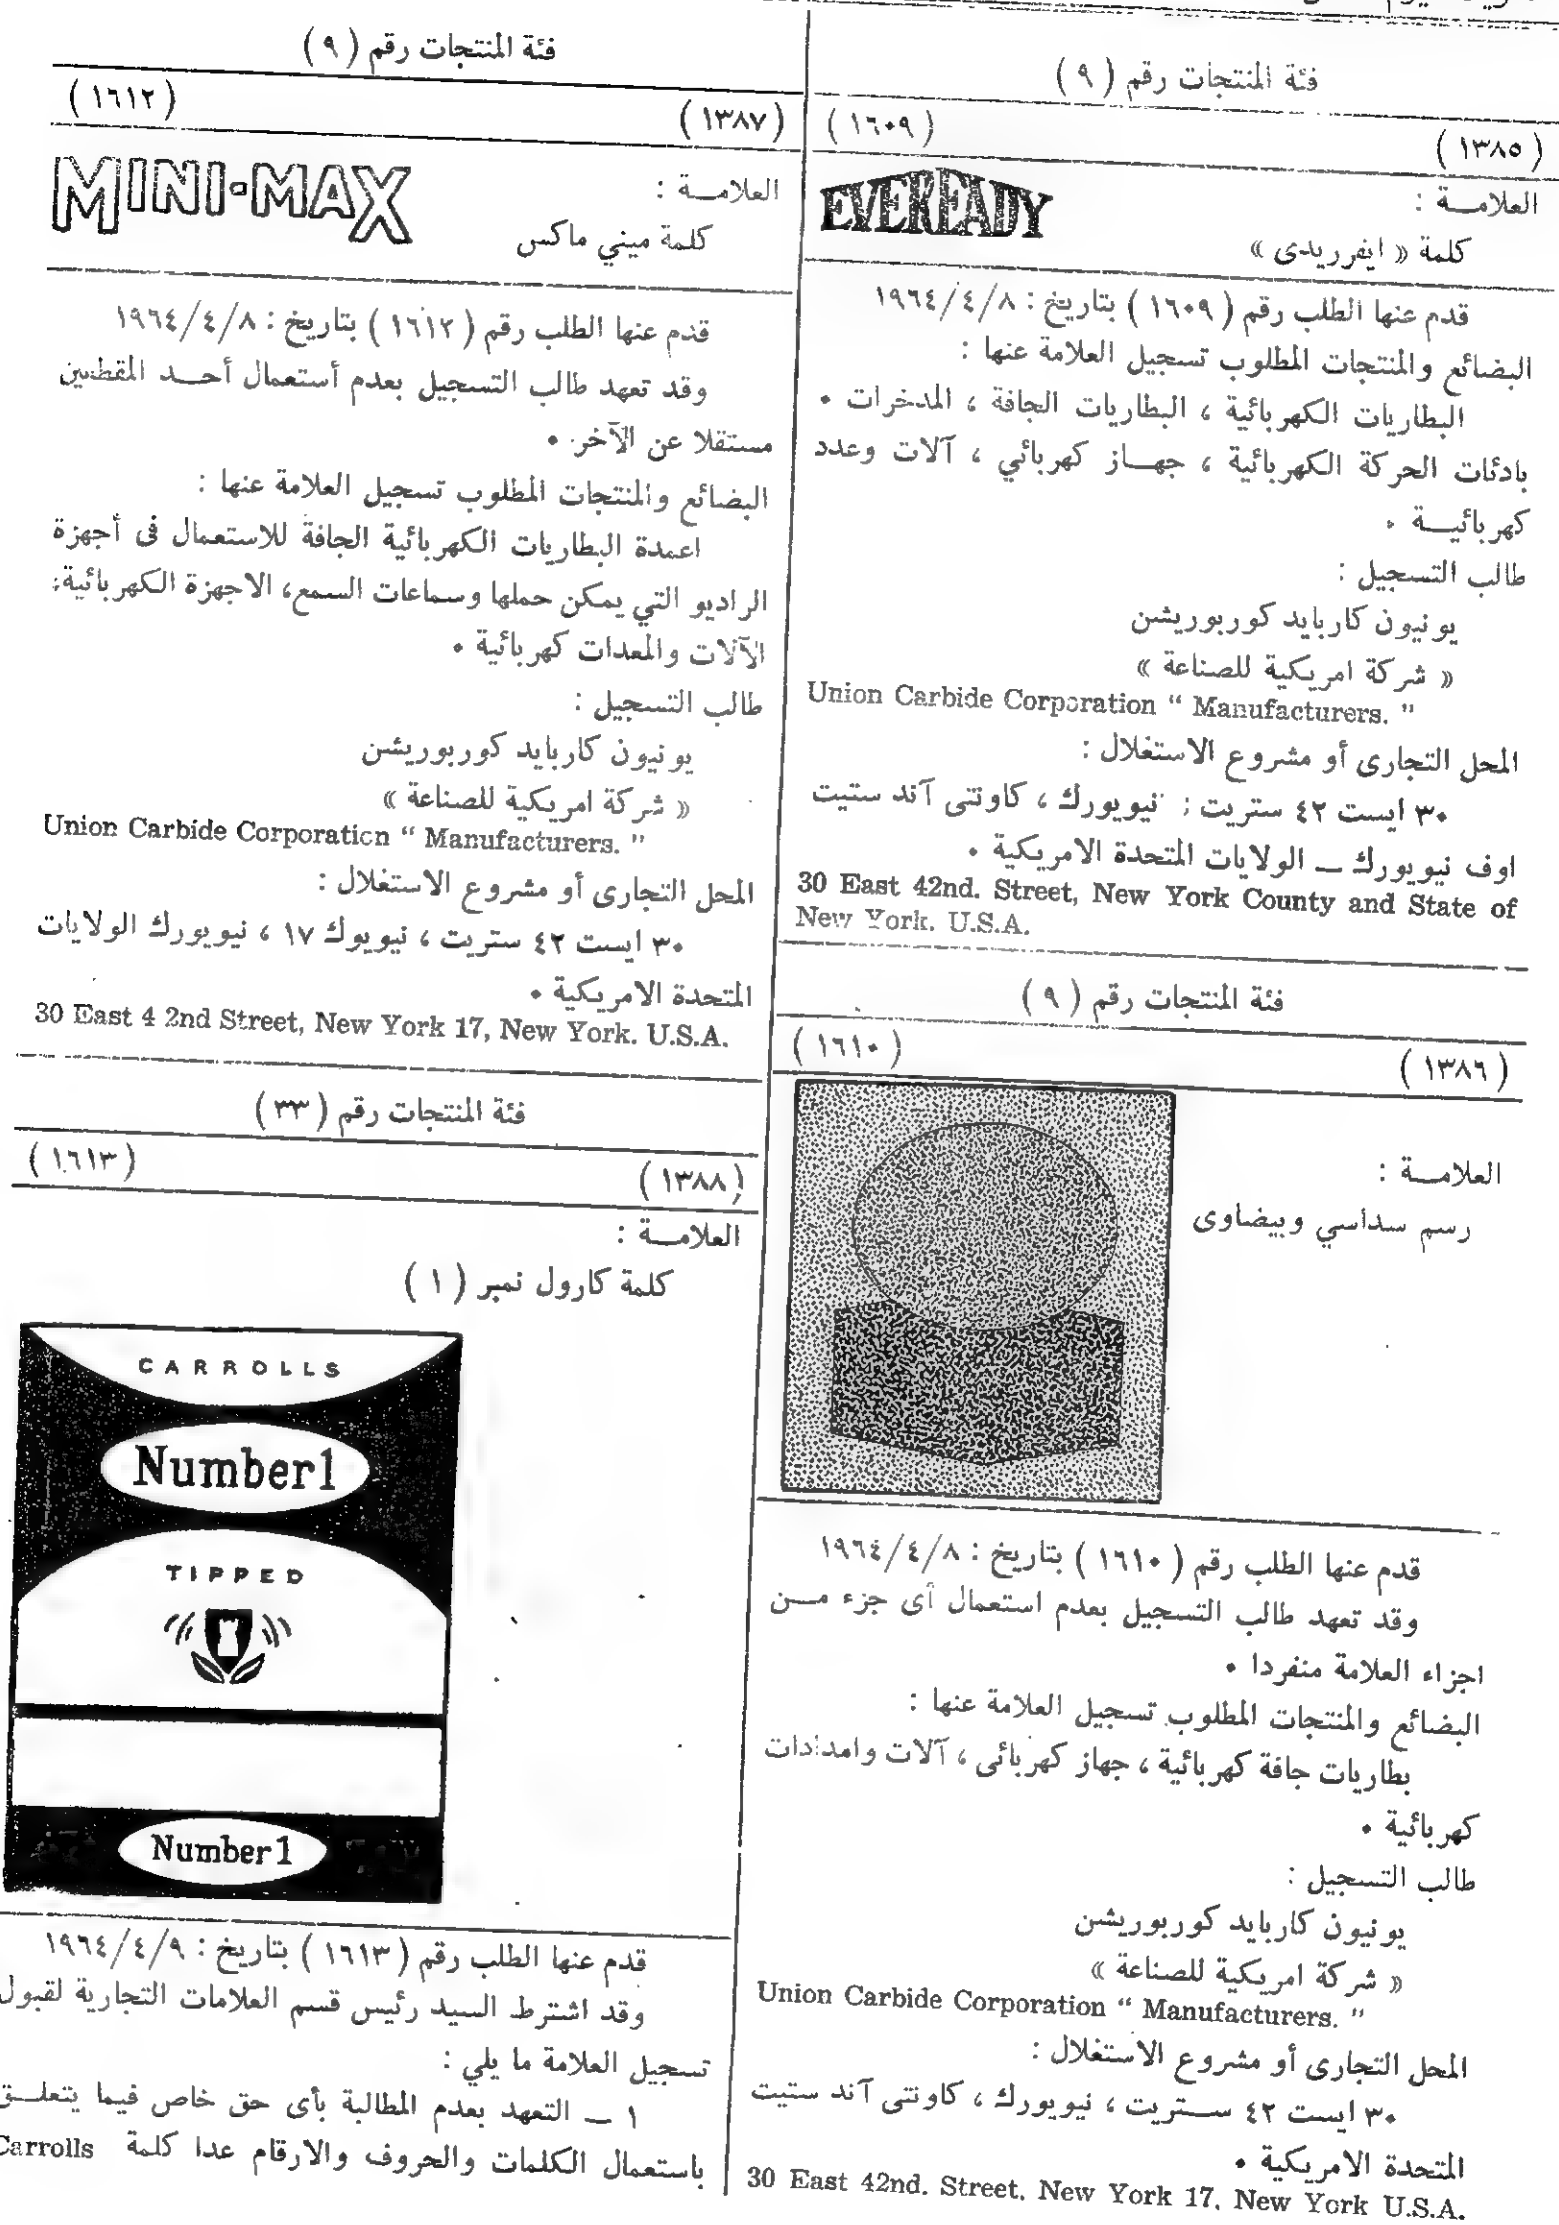 فئة المنتجات رقم ( ٩ )
( ١٣٨٥ ) ( ١٦٠٩ )
العلامــة :
كلمة « ايفرريدى »
EVEREADY
قدم عنها الطلب رقم ( ١٦٠٩ ) بتاريخ : ١٩٦٤/٤/٨
البضائع والمنتجات المطلوب تسجيل العلامة عنها :
البطاريات الكهربائية ، البطاريات الجافة ، المدخرات ٠
بادئات الحركة الكهربائية ، جهــاز كهربائي ، آلات وعدد
كهربائيــة ٠
طالب التسجيل :
يونيون كاربايد كوربوريشن
« شركة امريكية للصناعة »
Union Carbide Corporation " Manufacturers. "
المحل التجارى أو مشروع الاستغلال :
٣٠ ايست ٤٢ ستريت ; نيويورك ، كاونتى آند ستيت
اوف نيويورك ــ الولايات المتحدة الامريكية ٠
30 East 42nd. Street, New York County and State of
New York. U.S.A.
فئة المنتجات رقم ( ٩ )
( ١٣٨٦ ) ( ١٦١٠ )
العلامــة :
رسم سداسي وبيضاوى
قدم عنها الطلب رقم ( ١٦١٠ ) بتاريخ : ١٩٦٤/٤/٨
وقد تعهد طالب التسجيل بعدم استعمال أى جزء مــن
اجزاء العلامة منفردا ٠
البضائع والمنتجات المطلوب تسجيل العلامة عنها :
بطاريات جافة كهربائية ، جهاز كهربائى ، آلات وامدادات
كهربائية ٠
طالب التسجيل :
يونيون كاربايد كوربوريشن
« شركة امريكية للصناعة »
Union Carbide Corporation " Manufacturers. "
المحل التجارى أو مشروع الاستغلال :
٣٠ ايست ٤٢ ســتريت ، نيويورك ، كاونتى آند ستيت
المتحدة الامريكية ٠
30 East 42nd. Street. New York 17. New York U.S.A.
فئة المنتجات رقم ( ٩ )
( ١٣٨٧ ) ( ١٦١٢ )
العلامــة :
كلمة ميني ماكس
MINI-MAX
قدم عنها الطلب رقم ( ١٦١٢ ) بتاريخ : ١٩٦٤/٤/٨
وقد تعهد طالب التسجيل بعدم أستعمال أحــد المقطعين
مستقلا عن الآخر ٠
البضائع والمنتجات المطلوب تسجيل العلامة عنها :
اعمدة البطاريات الكهربائية الجافة للاستعمال فى أجهزة
الراديو التي يمكن حملها وسماعات السمع، الاجهزة الكهربائية،
الآلات والمعدات كهربائية ٠
طالب التسجيل :
يونيون كاربايد كوربوريشن
« شركة امريكية للصناعة »
Union Carbide Corporation " Manufacturers. "
المحل التجارى أو مشروع الاستغلال :
٣٠ ايست ٤٢ ستريت ، نيويوك ١٧ ، نيويورك الولايات
المتحدة الامريكية ٠
30 East 4 2nd Street, New York 17, New York. U.S.A.
فئة المنتجات رقم ( ٣٣ )
( ١٣٨٨ ) ( ١٦١٣ )
العلامــة :
كلمة كارول نمبر ( ١ )
CARROLLS
Number1
TIPPED
Number1
قدم عنها الطلب رقم ( ١٦١٣ ) بتاريخ : ١٩٦٤/٤/٩
وقد اشترط السيد رئيس قسم العلامات التجارية لقبول
تسجيل العلامة ما يلي :
١ ــ التعهد بعدم المطالبة بأى حق خاص فيما يتعلــق
باستعمال الكلمات والحروف والارقام عدا كلمة Carrolls